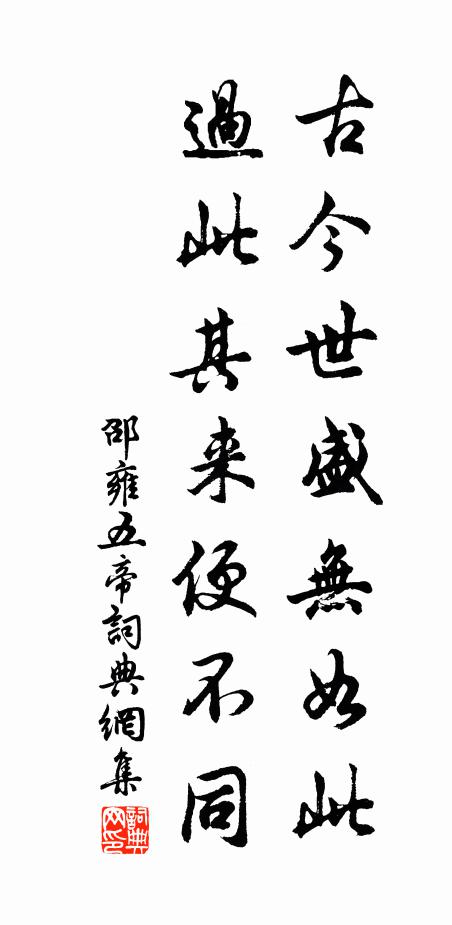 古今世盛無如此
過此其来便不同
邵雍五帝詞典網集
詞典网印